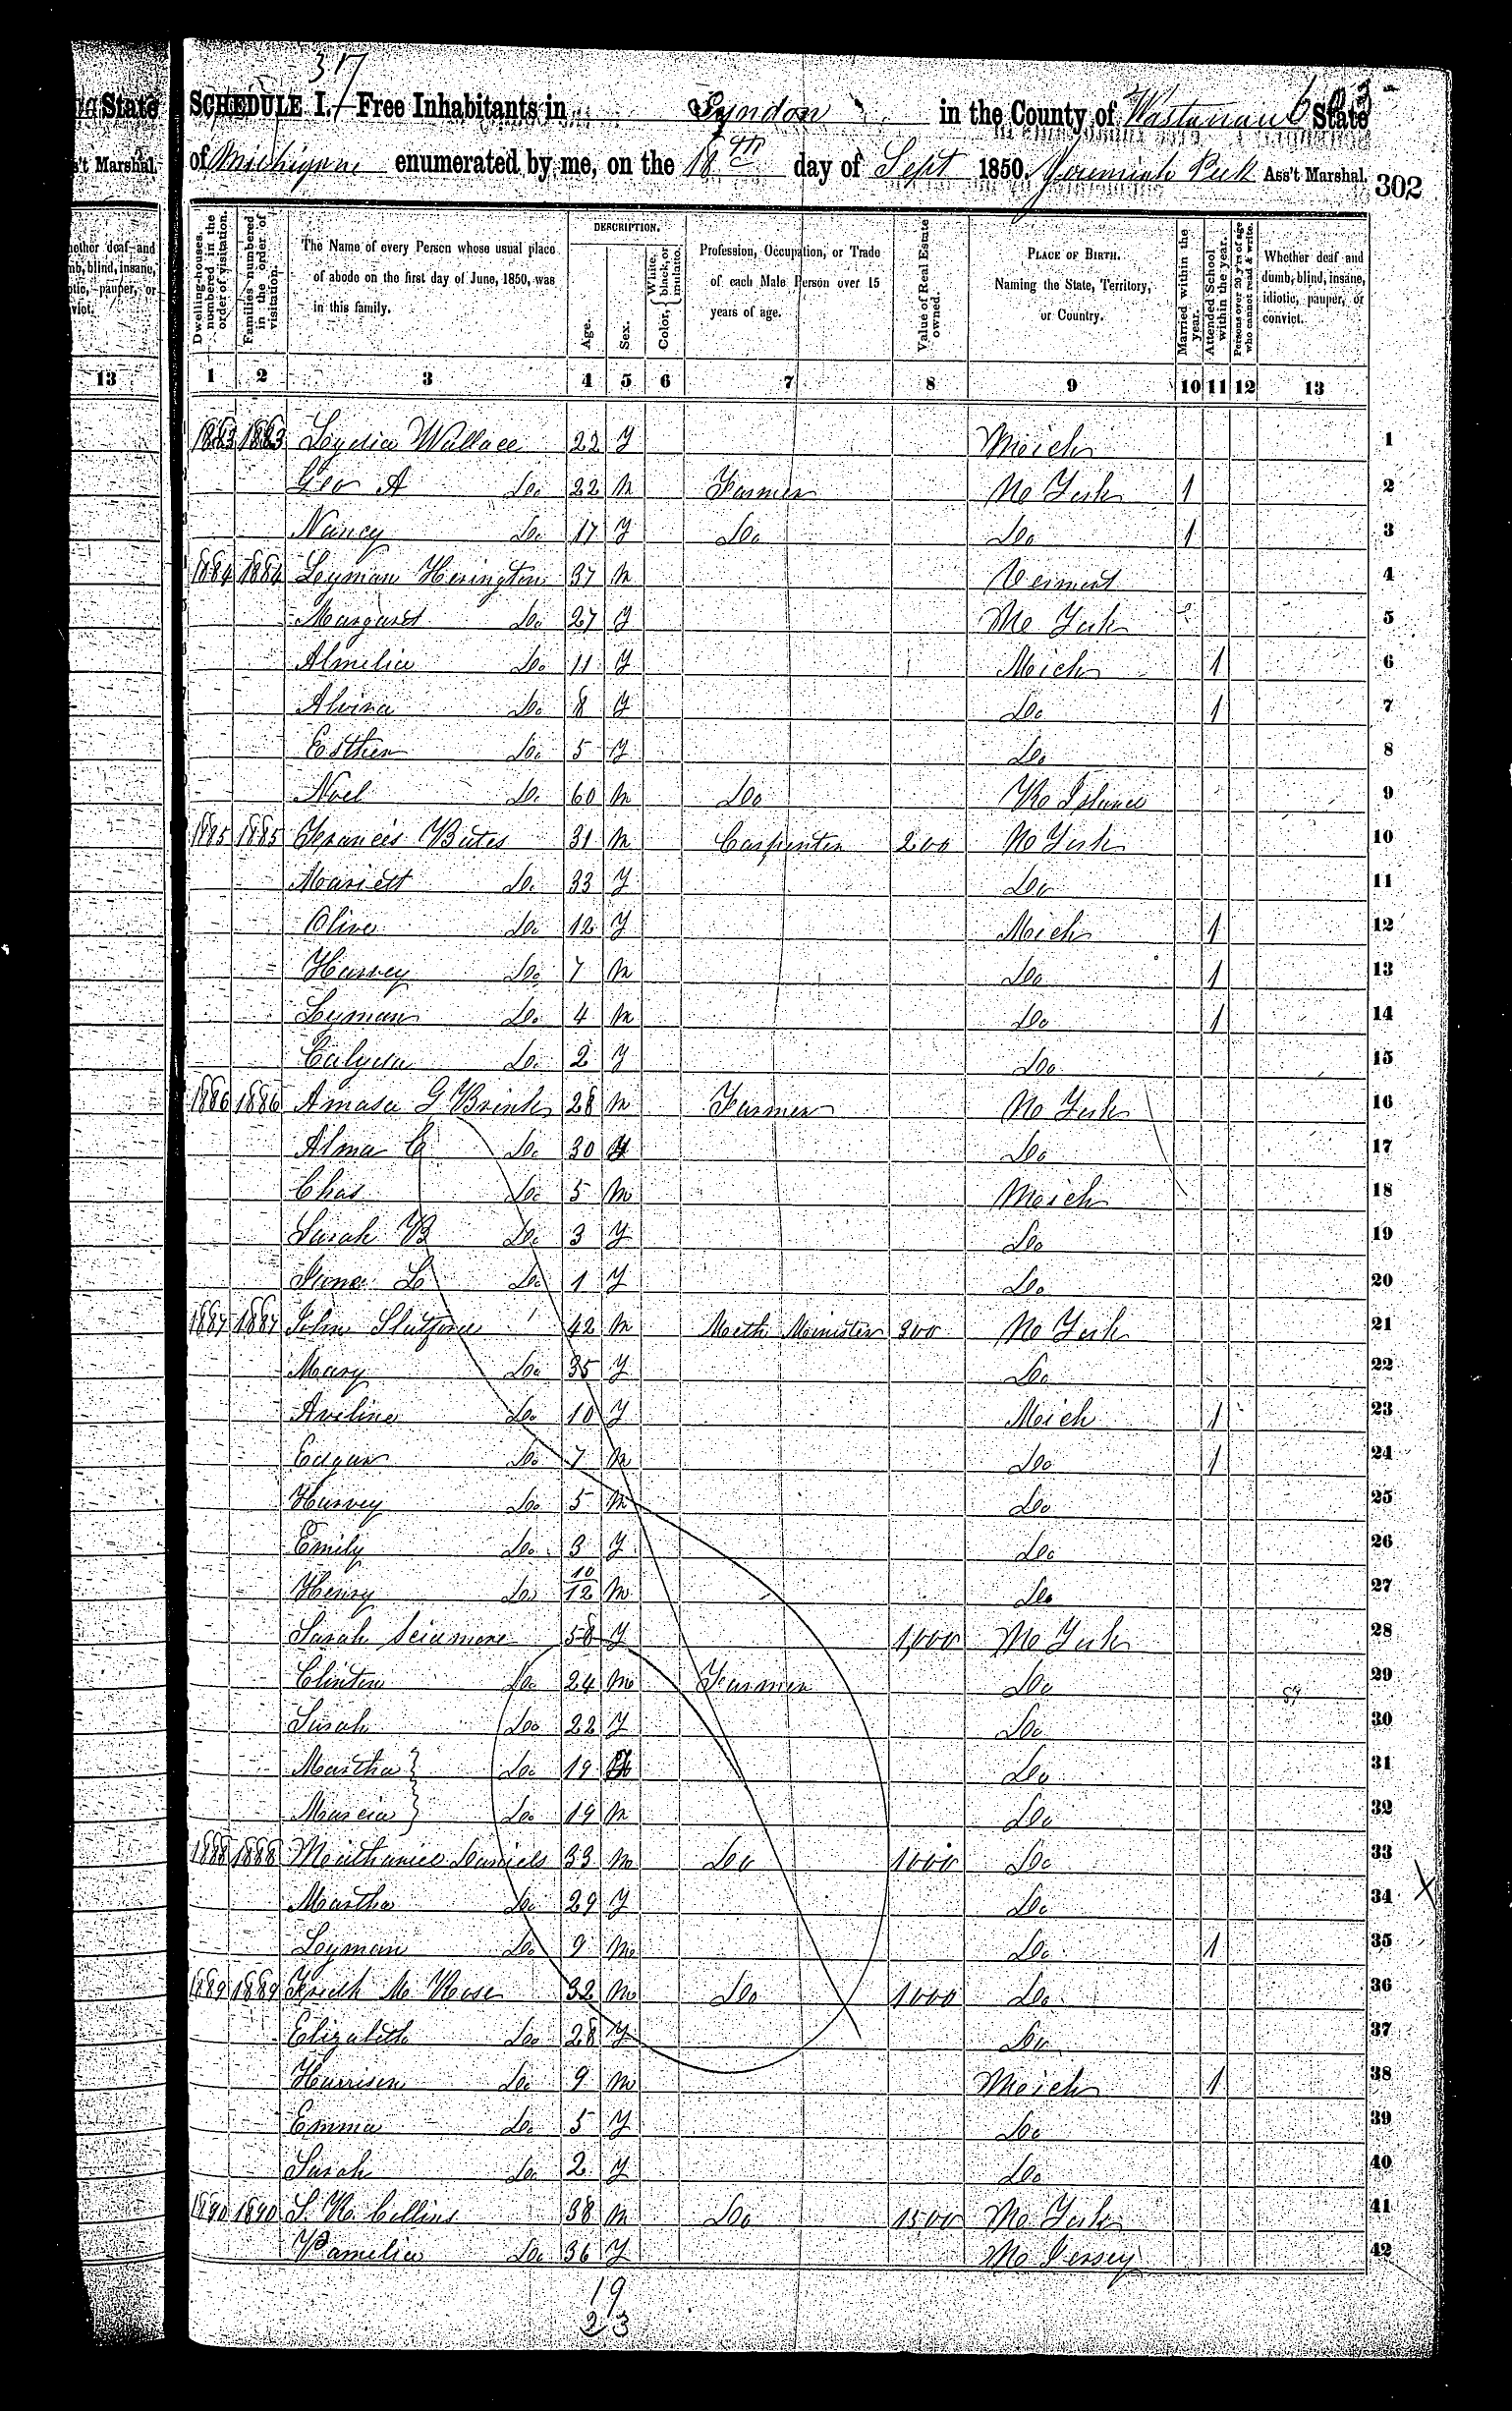 37
SCHEDULE I.—Free Inhabitants in Lyndon in the County of Wastanaw State 603
of Michigan enumerated by me, on the 18th day of Sept 1850. Jeremiah Peek Ass't Marshal. 302
Dwelling-houses numbered in the order of visitation.
Families numbered in the order of visitation.
The Name of every Person whose usual place of abode on the first day of June, 1850, was in this family.
DESCRIPTION.
Age.
Sex.
Color, { White, black, or mulatto.
Profession, Occupation, or Trade of each Male Person over 15 years of age.
Value of Real Estate owned.
PLACE OF BIRTH. Naming the State, Territory, or Country.
Married within the year.
Attended School within the year.
Persons over 20 y'rs of age who cannot read & write.
Whether deaf and dumb, blind, insane, idiotic, pauper, or convict.
1 2 3 4 5 6 7 8 9 10 11 12 13
1883 1883 Lydia Wallace 22 F Mich 1
Geo A Do 22 M Farmer No York 1 2
Nancy Do 17 F Do Do 1 3
1884 1884 Lyman Herington 37 M Vermont 4
Margaret Do 27 F No York 5
Almelia Do 11 F Mich 1 6
Alvina Do 8 F Do 1 7
Esther Do 5 F Do 8
Noel Do 60 M Do Ro Island 9
1885 1885 Francis Bates 31 M Carpenter 200 No York 10
Mariett Do 33 F Do 11
Olive Do 12 F Mich 1 12
Harvey Do 7 M Do 1 13
Lyman Do 4 M Do 1 14
Do 2 F Do 15
1886 1886 Amasa G Brink 28 M Farmer No York 16
Alma C Do 30 F Do 17
Chas Do 5 M Mich 18
Sarah B Do 3 F Do 19
Jane L Do 1 F Do 20
1887 1887 John 42 M Meth Minister 300 No York 21
Mary Do 35 F Do 22
Aveline Do 10 F Mich 1 23
Edgar Do 7 M Do 1 24
Harvey Do 5 M Do 25
Emily Do 3 F Do 26
Henry Do 10/12 M Do 27
Sarah 58 F 1,000 No York 28
Clinton Do 24 M Farmer Do 29
Sarah Do 22 F Do 30
Martha } Do 19 Do 31
Marcia } Do 19 M Do 32
1888 1888 Nathaniel Daniels 33 M Do 1000 Do 33
Martha Do 29 F Do 34
Lyman Do 9 M Do 1 35
1889 1889 M Rose 32 M Do 1000 Do 36
Elizabeth Do 28 F Do 37
Harrison Do 9 M Mich 1 38
Emma Do 5 F Do 39
Sarah Do 2 F Do 40
1890 1890 S. R. Collins 38 M Do 1500 No York 41
Pamelia Do 36 F No Jersey 42
19
23